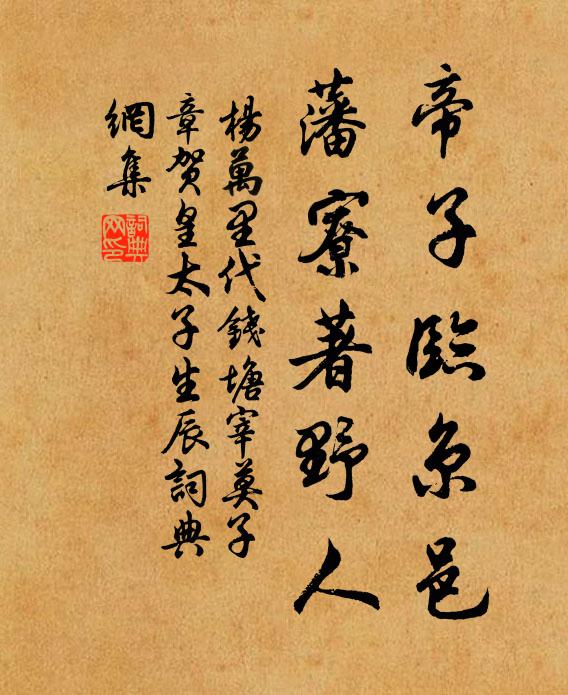 帝子臨京邑
藩寮著野人
楊萬里代錢塘宰莫子
章賀皇太子生辰詞典
網集
詞典
网印